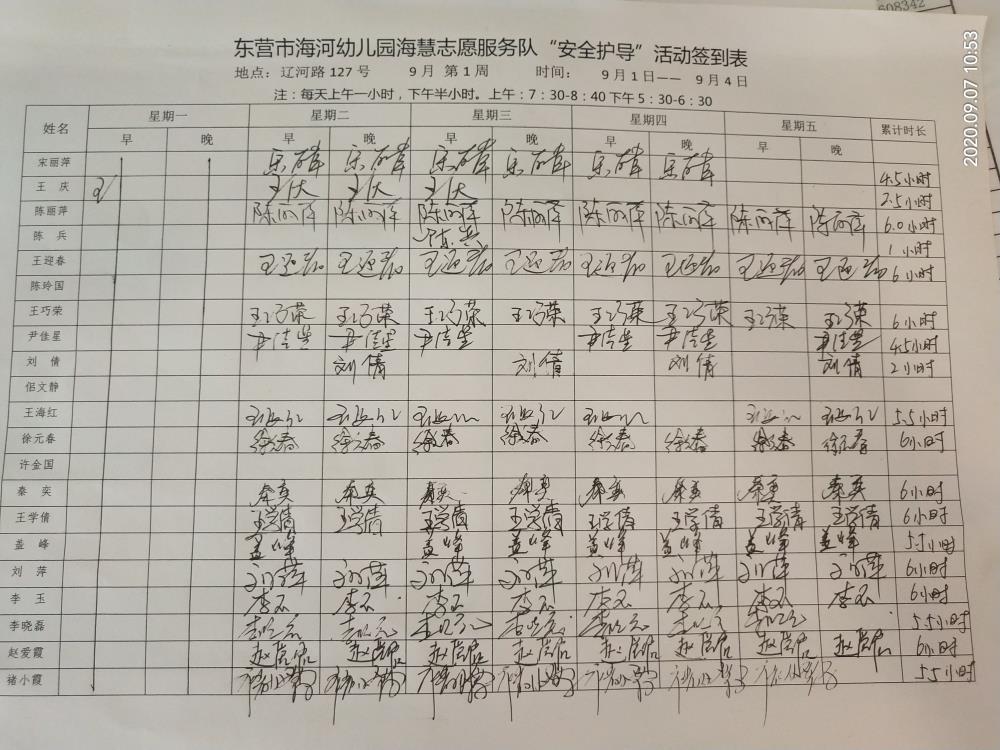 608342
东营市海河幼儿园海慧志愿服务队“安全护导”活动签到表
地点：辽河路 127 号 9月 第1周 时间： 9月1日—— 9月4日
注：每天上午一小时，下午半小时。上午：7：30-8：40 下午 5：30-6：30
姓名 星期一 星期二 星期三 星期四 星期五 累计时长
早 晚 早 晚 早 晚 早 晚 早 晚
宋丽萍 宋丽萍 宋丽萍 宋丽萍 宋丽萍 宋丽萍 宋丽萍 4.5小时
王 庆 王庆 王庆 王庆 2.5小时
陈丽萍 陈丽萍 陈丽萍 陈丽萍 陈丽萍 陈丽萍 陈丽萍 陈丽萍 陈丽萍 6.0小时
陈 兵 陈兵 1小时
王迎春 王迎春 王迎春 王迎春 王迎春 王迎春 王迎春 王迎春 王迎春 6小时
陈玲国
王巧荣 王巧荣 王巧荣 王巧荣 王巧荣 王巧荣 王巧荣 王巧荣 王巧荣 6小时
尹佳星 尹佳星 尹佳星 尹佳星 尹佳星 尹佳星 尹佳星 4.5小时
刘 倩 刘倩 刘倩 刘倩 刘倩 2小时
侣文静
王海红 王海红 王海红 王海红 王海红 王海红 王海红 王海红 5.5小时
徐元春 徐元春 徐元春 徐元春 徐元春 徐元春 徐元春 徐元春 徐元春 6小时
许金国
秦 奕 秦奕 秦奕 秦奕 秦奕 秦奕 秦奕 秦奕 秦奕 6小时
王学倩 王学倩 王学倩 王学倩 王学倩 王学倩 王学倩 王学倩 王学倩 6小时
盖 峰 盖峰 盖峰 盖峰 盖峰 盖峰 盖峰 盖峰 5.5小时
刘 萍 刘萍 刘萍 刘萍 刘萍 刘萍 刘萍 刘萍 刘萍 6小时
李 玉 李玉 李玉 李玉 李玉 李玉 李玉 李玉 李玉 6小时
李晓磊 李晓磊 李晓磊 李晓磊 李晓磊 李晓磊 李晓磊 李晓磊 5.5小时
赵爱霞 赵爱霞 赵爱霞 赵爱霞 赵爱霞 赵爱霞 赵爱霞 赵爱霞 赵爱霞 6小时
褚小霞 褚小霞 褚小霞 褚小霞 褚小霞 褚小霞 褚小霞 褚小霞 5.5小时
2020.09.07 10:53